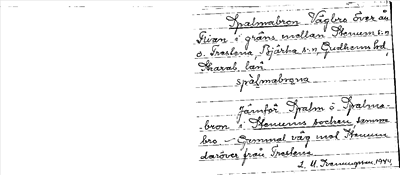 Spalmabron Vägbro över ån
Tivan i gräns mellan Stenum s:n
o. Trestena, Bjärka s:n Gudhems hd
Skarab. län
spalmabrona
Jämför Spalm o. Spalma-
bron i Stenums socken, samma
bro – Gammal väg mot Stenum
daröver från Trestena